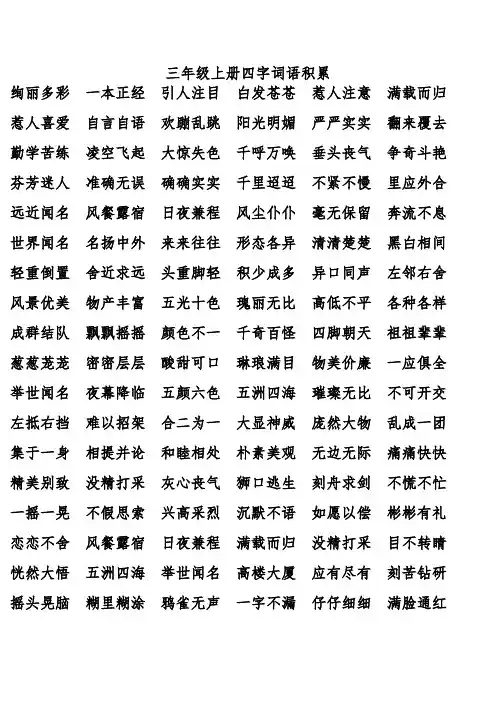 三年级上册四字词语积累
绚丽多彩 一本正经 引人注目 白发苍苍 惹人注意 满载而归
惹人喜爱 自言自语 欢蹦乱跳 阳光明媚 严严实实 翻来覆去
勤学苦练 凌空飞起 大惊失色 千呼万唤 垂头丧气 争奇斗艳
芬芳迷人 准确无误 确确实实 千里迢迢 不紧不慢 里应外合
远近闻名 风餐露宿 日夜兼程 风尘仆仆 毫无保留 奔流不息
世界闻名 名扬中外 来来往往 形态各异 清清楚楚 黑白相间
轻重倒置 舍近求远 头重脚轻 积少成多 异口同声 左邻右舍
风景优美 物产丰富 五光十色 瑰丽无比 高低不平 各种各样
成群结队 飘飘摇摇 颜色不一 千奇百怪 四脚朝天 祖祖辈辈
葱葱茏茏 密密层层 酸甜可口 琳琅满目 物美价廉 一应俱全
举世闻名 夜幕降临 五颜六色 五洲四海 璀璨无比 不可开交
左抵右挡 难以招架 合二为一 大显神威 庞然大物 乱成一团
集于一身 相提并论 和睦相处 朴素美观 无边无际 痛痛快快
精美别致 没精打采 灰心丧气 狮口逃生 刻舟求剑 不慌不忙
一摇一晃 不假思索 兴高采烈 沉默不语 如愿以偿 彬彬有礼
恋恋不舍 风餐露宿 日夜兼程 满载而归 没精打采 目不转睛
恍然大悟 五洲四海 举世闻名 高楼大厦 应有尽有 刻苦钻研
摇头晃脑 糊里糊涂 鸦雀无声 一字不漏 仔仔细细 满脸通红